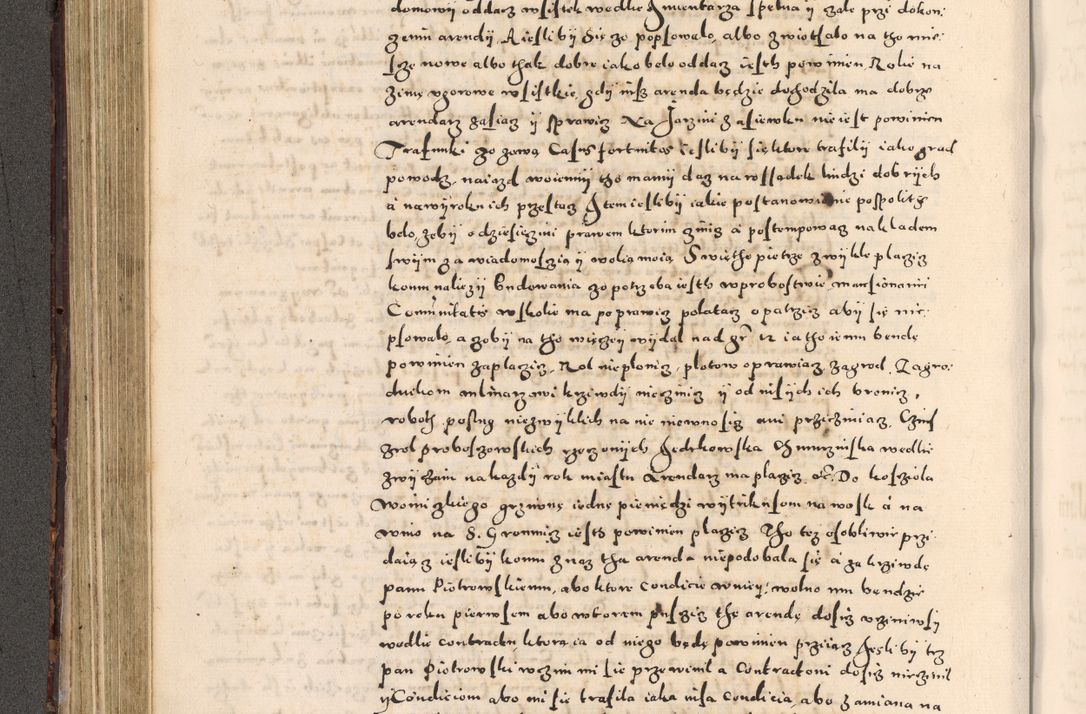 domowij oddacz wsistek wedlie Inwentarza spelna ij zale przi dokon:
czeniu arendij. A iesli bij sie zo popsowalo, albo zwiotsalo na tho mie:
scze nowe albo thak dobre iako belo oddacz iesth powinien. Rolie na
zime ugorowe wsistkie, gdij insz arenda bedzie dochodzila ma dobrze
arendarz zasiacz ij sprawicz Na Jarzini zasiewku nie iest powinien
Trafunki zo zową Casus fortuitos iesli bij sie ktore trafilij iako grad
powodz, naiazd woiennij tho mamij dacz na wssadek ludzi dobrijch
a na wijroku ich przestacz Item iesli bij iakie postanowienie pospolite
belo, zebij o dziesieczini prawem ktorim czinicz a postempowacz nakladem
swijm za wiadomosczią ij wolią moią Swiętho pietrze zwijkle placzicz
komu nalieżij Budowania czo potrzeba iesth w probostwie, mansionarij
Communitatis w skolie ma poprawicz polatacz opatrzicz abij sie nie
psowalo, a gdbij na tho więczeij wijdal nad gr. iz ia tho iemu bende
powinien zaplaczicz. Rol nieplonicz, plotow oprawiacz zagrod, Zagro:
dnikom mlinarzowi krziwdij nieczinicz ij od inssijch ich bronicz,
roboth poslug niezwijklich na nie niewnosicz ani przicziniacz, Czins
zrol proboszowskich rzeczonijch Jedrkowska Chmurzinska wedlie
zwijczaiu na kazdij rok miastu Arendarz ma placzicz etc. Do koscziola
woiniczkiego grziwnę iedne pieniedzi wijtrikusom na wosk a na
wino na S. Gromnicz iesth powinien placzicz Tho tez osobliwie przi
daiącz iesli bij komu znacz tha arenda niepodobala się a za krziwde
panu Piotrowskiemu, abo ktore condicie w nieij: wolno mu bendzie
po roku pierwsem abo wtorem pusczicz thę arendę dosicz ucziniwsij
wedlie contractu ktorą ia od niego bede powinien przijącz Jesli bij tez
pan Piotrowski w czim mi sie przewinil a Contractowi dosicz nieczinil
ij Condiciom abo mi sie trafila iaka insa Condicia, abo zamiana na